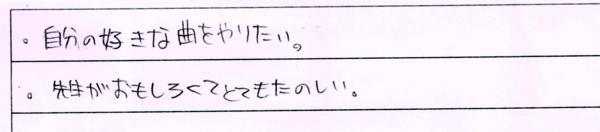 。自分の好きな曲をやりたい。
。先生がおもしろくてとてもたのしい。